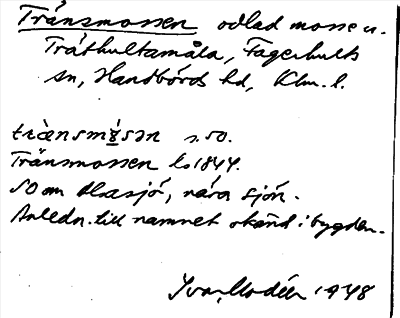 Tränsmossen odlad mosse u.
Tråthultamåla, Fagerhults
sn, Handbörds hd, Klm. l.
trànsmǫ́sən s. 50.
Tränsmossen ls 1844.
SO om Alsasjö, nära sjön.
Anledn. till namnet okänd i bygden.
Yvar Modéer 1948